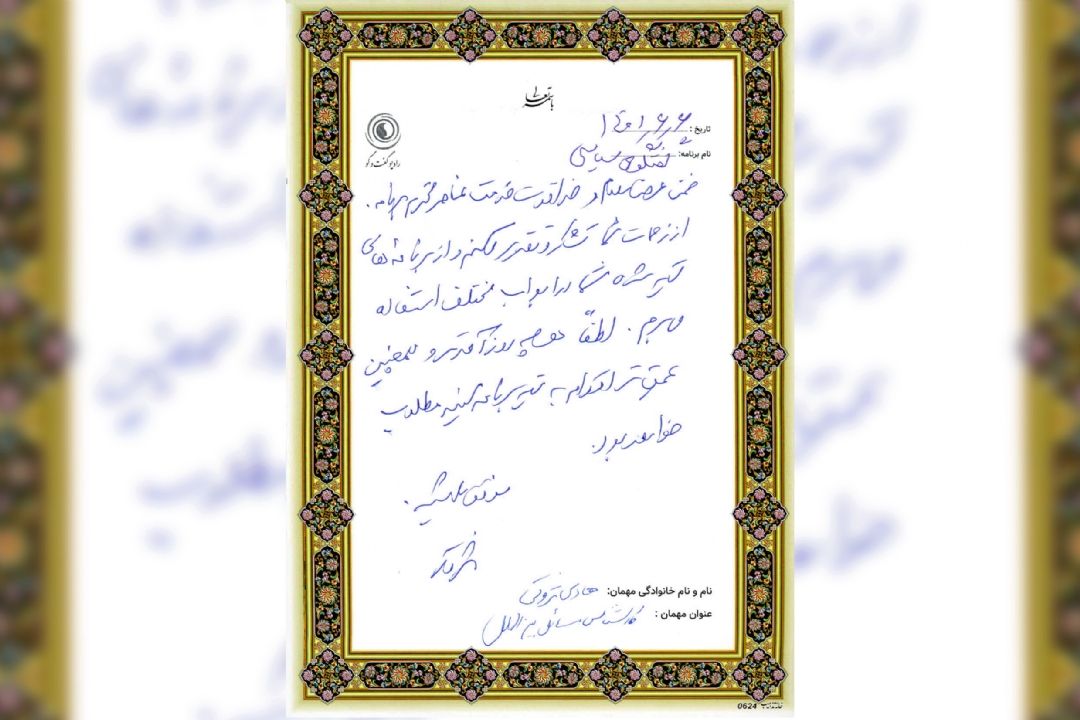 باسمه تعالی
رادیو گفت و گو
تاریخ: ۱۴۰۱/۶/۶
نام برنامه: گفتگوی سیاسی
ضمن عرض سلام و خداقوت خدمت عناصر محترم برنامه.
از زحمات شما تشکر و تقدیر میکنم و از برنامه های
تهیه شده شما در ابواب مختلف استفاده
میبرم. لطفاً هر چه روزآمدتر و همچنین
عمیق تر اقدام به تهیه برنامه کنید مطلوب
خواهد بود.
موفق باشید.
نام و نام خانوادگی مهمان: هادی
عنوان مهمان: کارشناس مسائل بین الملل
0624